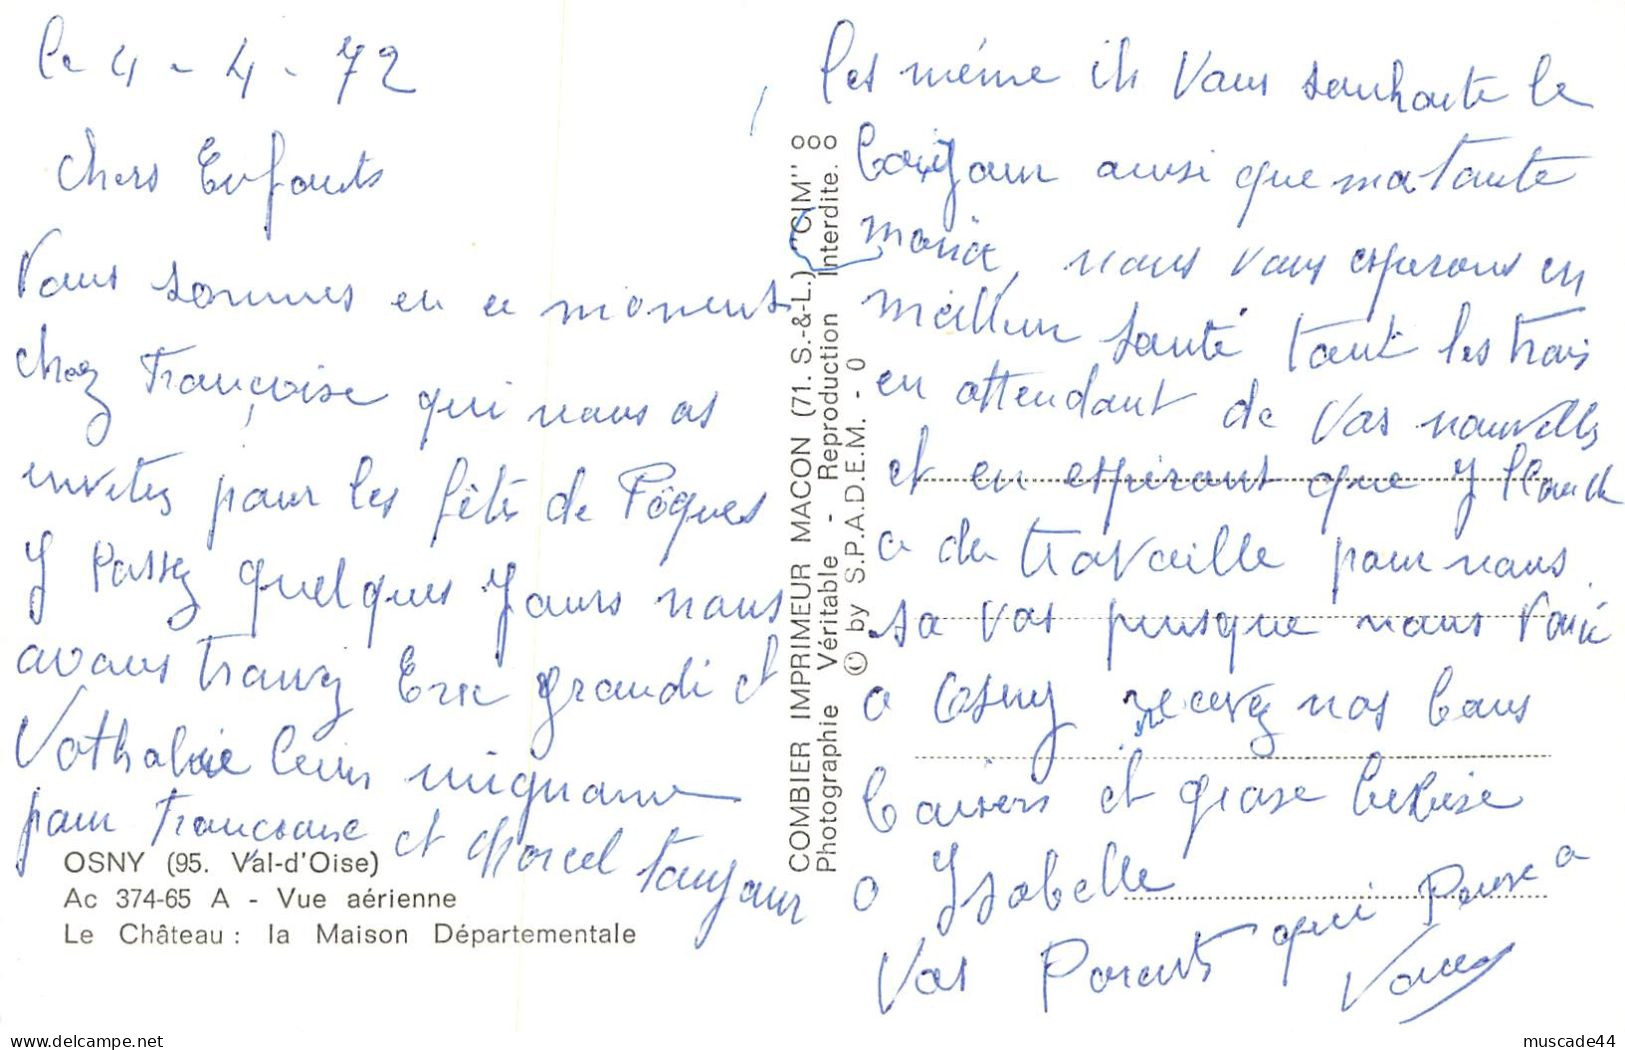 le 4 - 4 - 72
Chers Enfants
Nous sommes en ce moments
chez Françoise qui nous as
invitez pour les fêtes de Pâques
y Passez quelques Jours nous
avons trouvez Eric grandi et
Nathalie bien mignonne
pour Francoise et Marcel toujour
OSNY (95. Val-d'Oise)
Ac 374-65 A - Vue aérienne
Le Château : la Maison Départementale
COMBIER IMPRIMEUR MACON (71. S.-&-L.) "CIM"
Photographie Véritable - Reproduction Interdite.
© by S.P.A.D.E.M. - 0
les même ils Vous souhaite le
bonjour ainsi que ma tante
maria, nous vous esperons en
meilleur santé tout les trois
en attendant de Vos nouvelles
et en espérant que
a du travaille pour nous
sa vas puisque nous Voici
a Osny recevez nos bons
baisers et grosse bebise
a Ysabelle
Vos Parents qui Pense a
Vous
muscade44